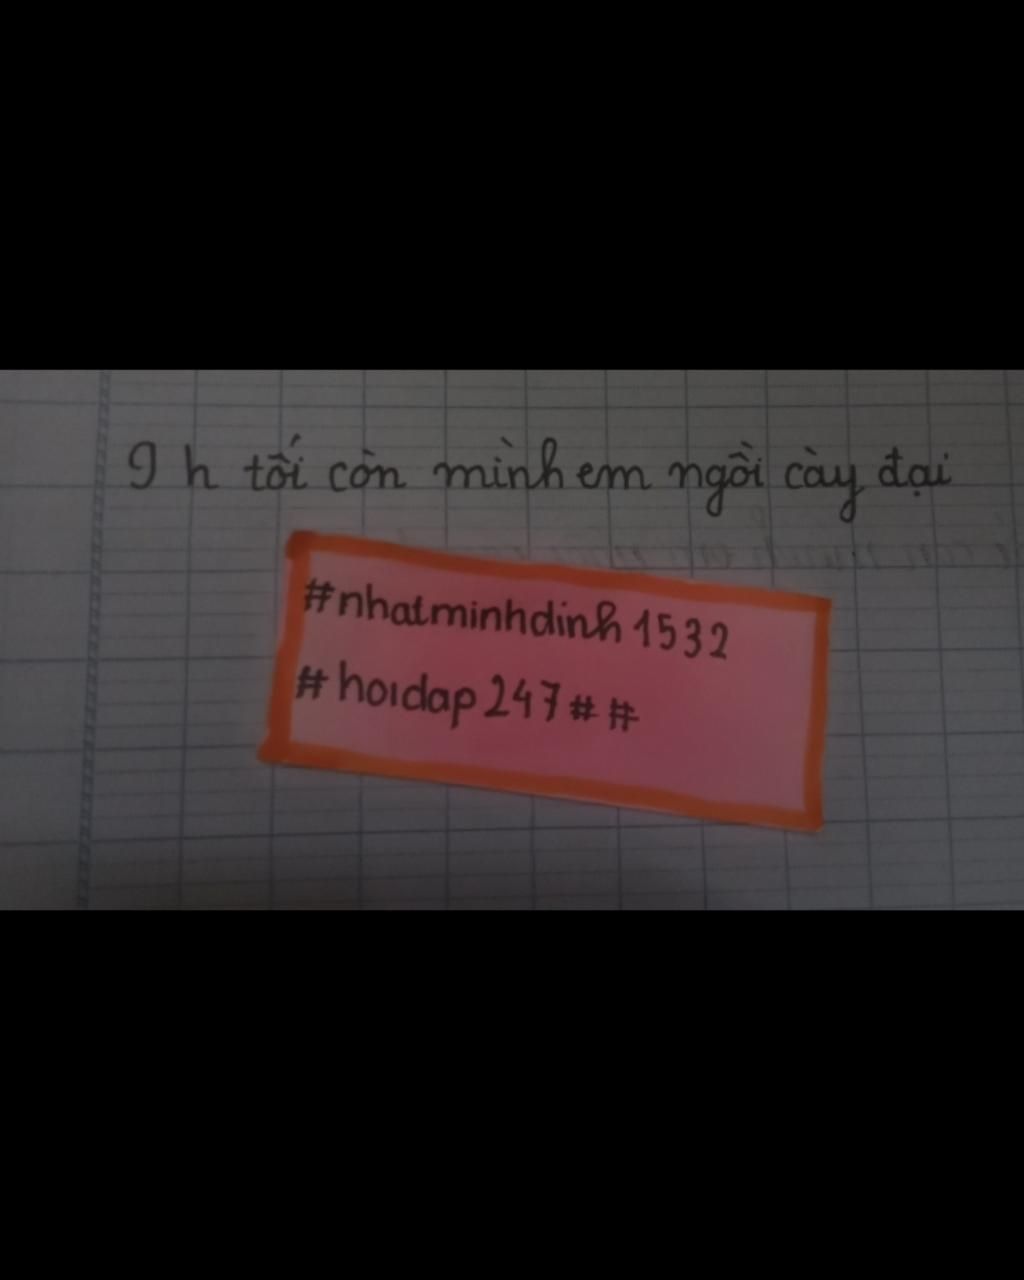 9 h tối còn mình em ngồi cày đại
#nhatminhdinh1532
#hoidap247##